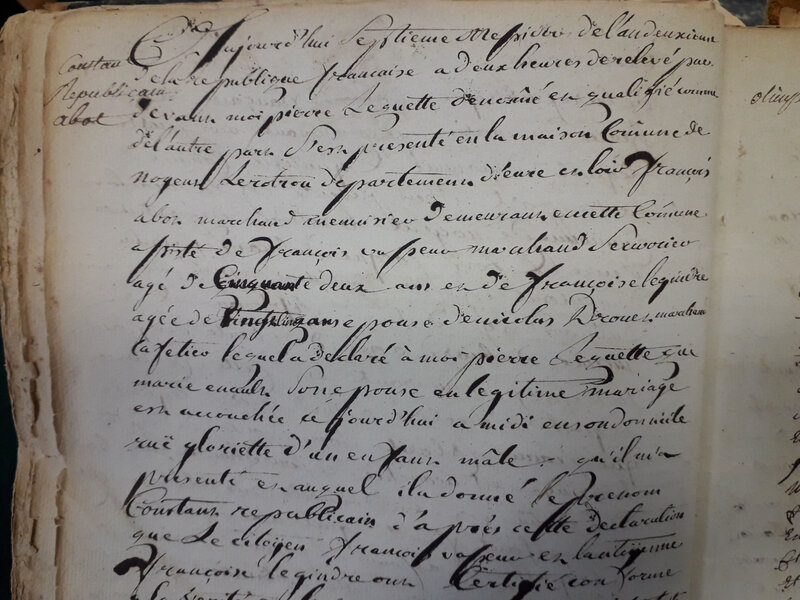 Constan
Republicain
abot
Cejourd'hui Septieme de l'an deuxieme
de la republique francaise a deux heures de relevé par
devann moi pierre Lequette denomé en qualifié comme
de l'autre parn S'est presenté en la maison Comune de
nogenn Le rotrou departemenn d'eure en loir françois
abon marchand menuisier demeurann en cette Comune
asisté de françois vapeur marchand
agé de Cinquante deux ans en de françoise legendre
agée de vingt cinq ans epouse de nicolas marchan
cafetier lequel a declaré à moi pierre Lequette que
marie Son epouse en legitime mariage
est accouchée ce jourd'hui a midi en son domicile
ruë gloriette d'un enfann mâle qu'il m'a
presenté en auquel il a donné le prenom
Constann republicain d'après cette declaration
que Le citoyen françois vapeur en la citoyenne
françoise legendre onn Certifié conforme
a la verité
olimp